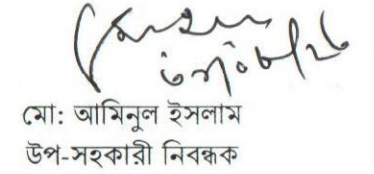 মো: আমিনুল ইসলাম
উপ-সহকারী নিবন্ধক